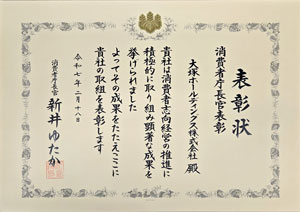 表彰状
消費者庁長官表彰
大塚ホールディングス株式会社 殿
貴社は消費者志向経営の推進に
積極的に取り組み顕著な成果を
挙げられました
よってその成果をたたえここに
貴社の取組を表彰します
令和七年二月十八日
消費者庁長官 新井ゆたか